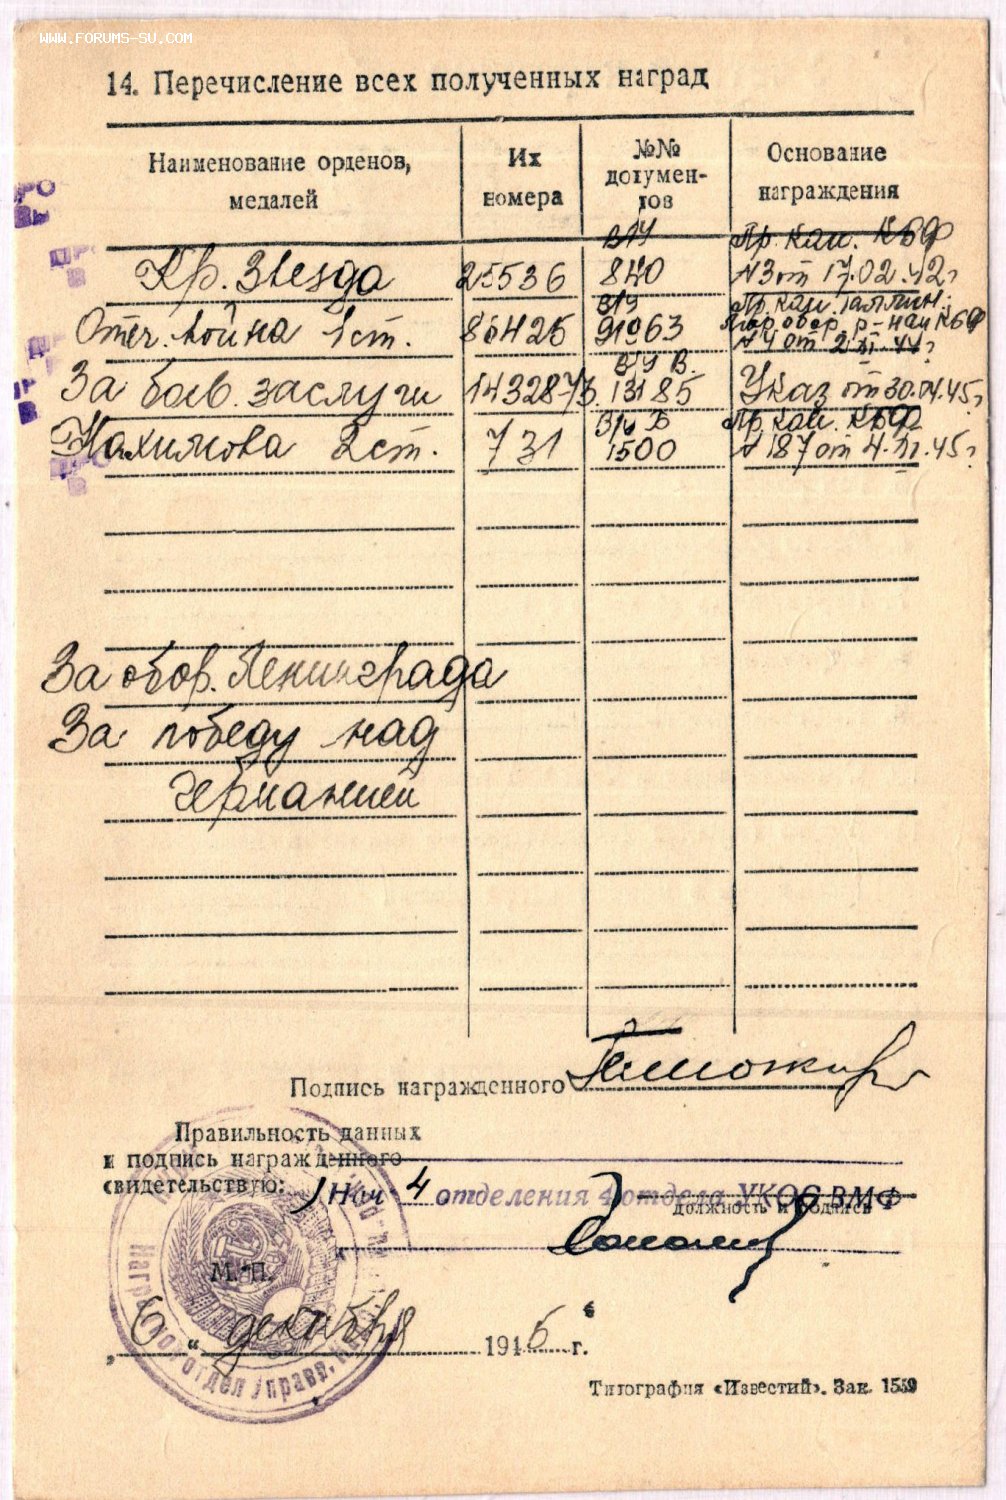 WWW.FORUMS-SU.COM
14. Перечисление всех полученных наград
Наименование орденов, медалей
Их номера
№№ документов
Основание награждения
Кр. Звезда 25536 840 Пр. кан. КБФ
N3 от 17.02.42г
Отеч. война 1 ст. 86425 91063 Пр. кан. Таллин.
мор. обор. р-на КБФ
N 4 от
За боев. заслуги 1432873 В 13185 Указ от 30.04.45г
Нахимова 2 ст. 731 Б 1500 Пр. кан. КБФ
N 187 от 4.VI.45г
За обор. Ленинграда
За победу над
Германией
Подпись награжденного
Правильность данных
и подпись награжденного
свидетельствую:
Нач 4 отделения 4 отдела УКОС ВМФ
должность и подпись
М. П.
„6“ декабря 1946 г.
Типография «Известий». Зак. 1559